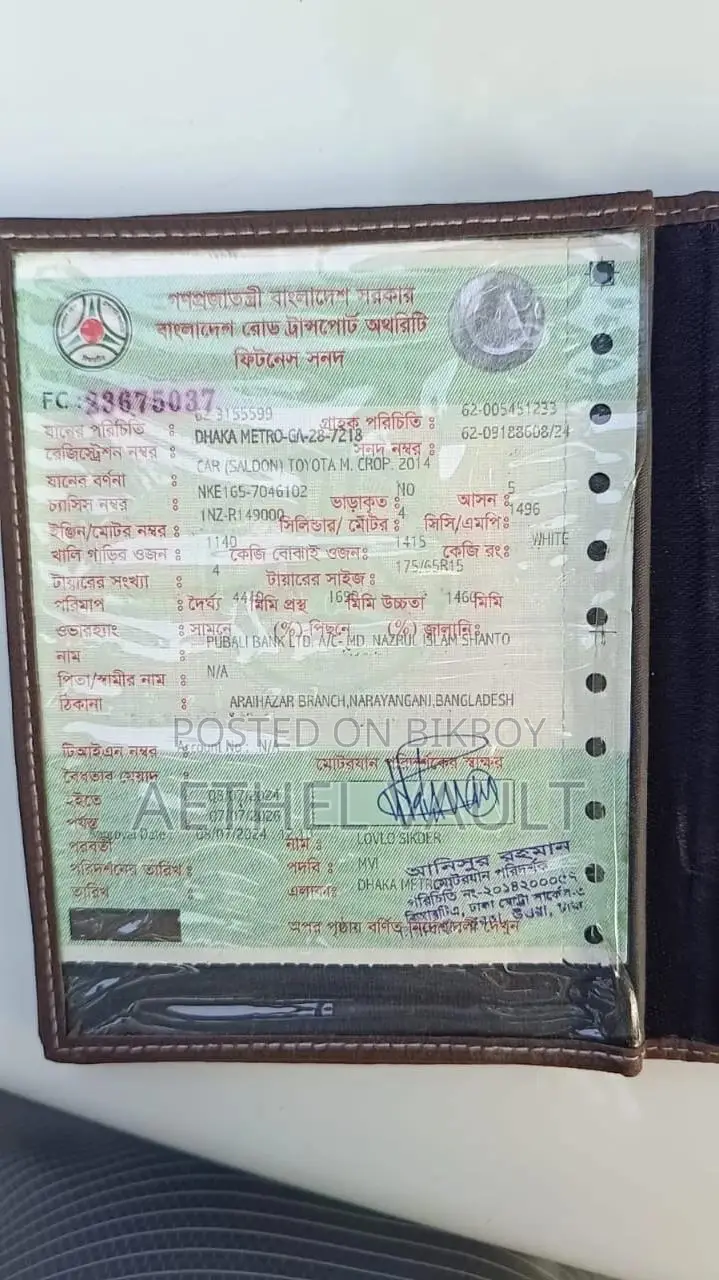 গণপ্রজাতন্ত্রী বাংলাদেশ সরকার
বাংলাদেশ রোড ট্রান্সপোর্ট অথরিটি
ফিটনেস সনদ
FC : 23675037
3155599 গ্রাহক পরিচিতি : 62-005451233
যানের পরিচিতি : DHAKA METRO-GA-28-7218 62-09188608/24
রেজিস্ট্রেশন নম্বর : সনদ নম্বর :
CAR (SALOON) TOYOTA M. CROP. 2014
যানের বর্ণনা :
NKE165-7046102 NO 5
চ্যাসিস নম্বর : ভাড়াকৃত : আসন :
1NZ-R149000 4 1496
ইঞ্জিন/মোটর নম্বর : সিলিন্ডার/ মোটর : সিসি/এমপি:
1140 1415 WHITE
খালি গাড়ির ওজন : কেজি বোঝাই ওজন: কেজি রং:
4 175/65R15
টায়ারের সংখ্যা : টায়ারের সাইজ :
পরিমাপ : দৈর্ঘ্য 4410 মিমি প্রস্থ 1695 মিমি উচ্চতা 1460 মিমি
ওভারহ্যাং : সামনে (%) পিছনে (%) জ্বালানি:
PUBALI BANK LTD. A/C- MD. NAZRUL ISLAM SHANTO
নাম :
N/A
পিতা/স্বামীর নাম :
ঠিকানা : ARAIHAZAR BRANCH,NARAYANGANJ,BANGLADESH
POSTED ON BIKROY
টিআইএন নম্বর : N/A
মোটরযান পরিদর্শকের স্বাক্ষর
বৈধতার মেয়াদ :
হইতে : 08/07/2024
AETHEL VAULT
পর্যন্ত : 07/07/2026
Approval Date : 08/07/2024
পরবর্তী নাম : LOVLO SIKDER
পরিদর্শনের তারিখ : পদবি : MVI
তারিখ এলাকা: DHAKA METRO
আনিসুর রহমান
মোটরযান পরিদর্শক
পরিচিতি নং-২০১৪২০০০৫২
বিআরটিএ, ঢাকা মেট্রো সার্কেল-৩
উত্তরা, ঢাকা
অপর পৃষ্ঠায় বর্ণিত নির্দেশাবলী দেখুন